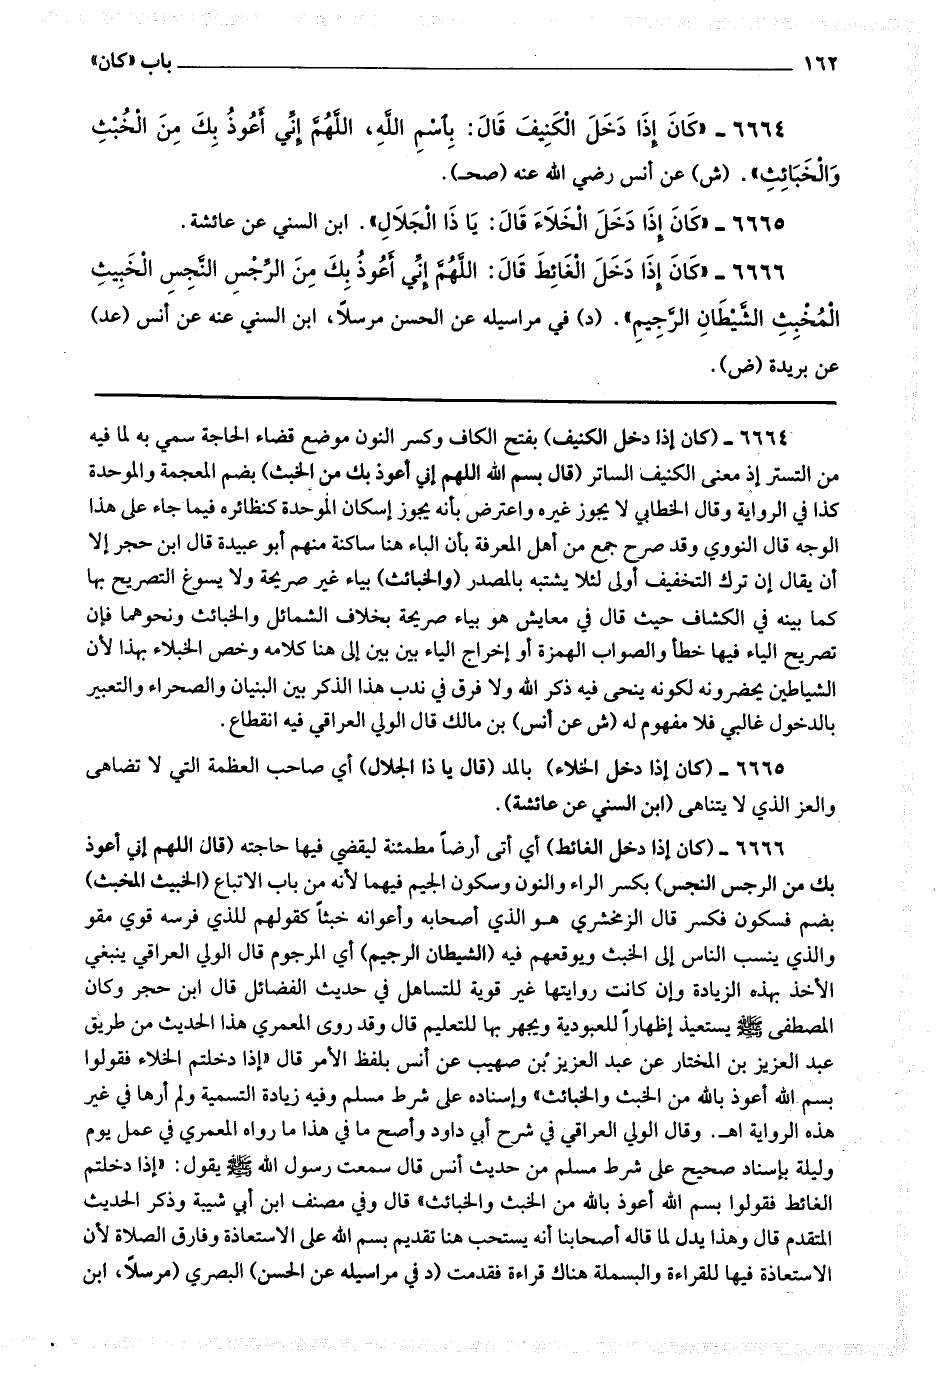 ١٦٢ باب «كان»
٦٦٦٤ ـ «كَانَ إِذَا دَخَلَ الْكَنِيفَ قَالَ: بِاسْمِ اللَّهِ، اللَّهُمَّ إِنِّي أَعُوذُ بِكَ مِنَ الْخُبُثِ
وَالْخَبَائِثِ». (ش) عن أنس رضي الله عنه (صحـ).
٦٦٦٥ ـ «كَانَ إِذَا دَخَلَ الْخَلَاءَ قَالَ: يَا ذَا الْجَلَالِ». ابن السني عن عائشة.
٦٦٦٦ ـ «كَانَ إِذَا دَخَلَ الْغَائِطَ قَالَ: اللَّهُمَّ إِنِّي أَعُوذُ بِكَ مِنَ الرِّجْسِ النَّجِسِ الْخَبِيثِ
الْمُخْبِثِ الشَّيْطَانِ الرَّجِيمِ». (د) في مراسيله عن الحسن مرسلاً، ابن السني عنه عن أنس (عد)
عن بريدة (ض).
٦٦٦٤ ـ (كان إذا دخل الكنيف) بفتح الكاف وكسر النون موضع قضاء الحاجة سمي به لما فيه
من التستر إذ معنى الكنيف الساتر (قال بسم الله اللهم إني أعوذ بك من الخبث) بضم المعجمة والموحدة
كذا في الرواية وقال الخطابي لا يجوز غيره واعترض بأنه يجوز إسكان الموحدة كنظائره فيما جاء على هذا
الوجه قال النووي وقد صرح جمع من أهل المعرفة بأن الباء هنا ساكنة منهم أبو عبيدة قال ابن حجر إلا
أن يقال إن ترك التخفيف أولى لئلا يشتبه بالمصدر (والخبائث) بياء غير صريحة ولا يسوغ التصريح بها
كما بينه في الكشاف حيث قال في معايش هو بياء صريحة بخلاف الشمائل والخبائث ونحوهما فإن
تصريح الياء فيها خطأ والصواب الهمزة أو إخراج الياء بين بين إلى هنا كلامه وخص الخلاء بهذا لأن
الشياطين يحضرونه لكونه ينحى فيه ذكر الله ولا فرق في ندب هذا الذكر بين البنيان والصحراء والتعبير
بالدخول غالبي فلا مفهوم له (ش عن أنس) بن مالك قال الولي العراقي فيه انقطاع.
٦٦٦٥ ـ (كان إذا دخل الخلاء) بالمد (قال يا ذا الجلال) أي صاحب العظمة التي لا تضاهى
والعز الذي لا يتناهى (ابن السني عن عائشة).
٦٦٦٦ ـ (كان إذا دخل الغائط) أي أتى أرضاً مطمئنة ليقضي فيها حاجته (قال اللهم إني أعوذ
بك من الرجس النجس) بكسر الراء والنون وسكون الجيم فيهما لأنه من باب الاتباع (الخبيث المخبث)
بضم فسكون فكسر قال الزمخشري هـو الذي أصحابه وأعوانه خبثاً كقولهم للذي فرسه قوي مقو
والذي ينسب الناس إلى الخبث ويوقعهم فيه (الشيطان الرجيم) أي المرجوم قال الولي العراقي ينبغي
الأخذ بهذه الزيادة وإن كانت روايتها غير قوية للتساهل في حديث الفضائل قال ابن حجر وكان
المصطفى ﷺ يستعيذ إظهاراً للعبودية ويجهر بها للتعليم قال وقد روى المعمري هذا الحديث من طريق
عبد العزيز بن المختار عن عبد العزيز بُن صهيب عن أنس بلفظ الأمر قال «إذا دخلتم الخلاء فقولوا
بسم الله أعوذ بالله من الخبث والخبائث» وإسناده على شرط مسلم وفيه زيادة التسمية ولم أرها في غير
هذه الرواية اهـ. وقال الولي العراقي في شرح أبي داود وأصح ما في هذا ما رواه المعمري في عمل يوم
وليلة بإسناد صحيح على شرط مسلم من حديث أنس قال سمعت رسول الله ﷺ يقول: «إذا دخلتم
الغائط فقولوا بسم الله أعوذ بالله من الخبث والخبائث» قال وفي مصنف ابن أبي شيبة وذكر الحديث
المتقدم قال وهذا يدل لما قاله أصحابنا أنه يستحب هنا تقديم بسم الله على الاستعاذة وفارق الصلاة لأن
الاستعاذة فيها للقراءة والبسملة هناك قراءة فقدمت (د في مراسيله عن الحسن) البصري (مرسلاً، ابن